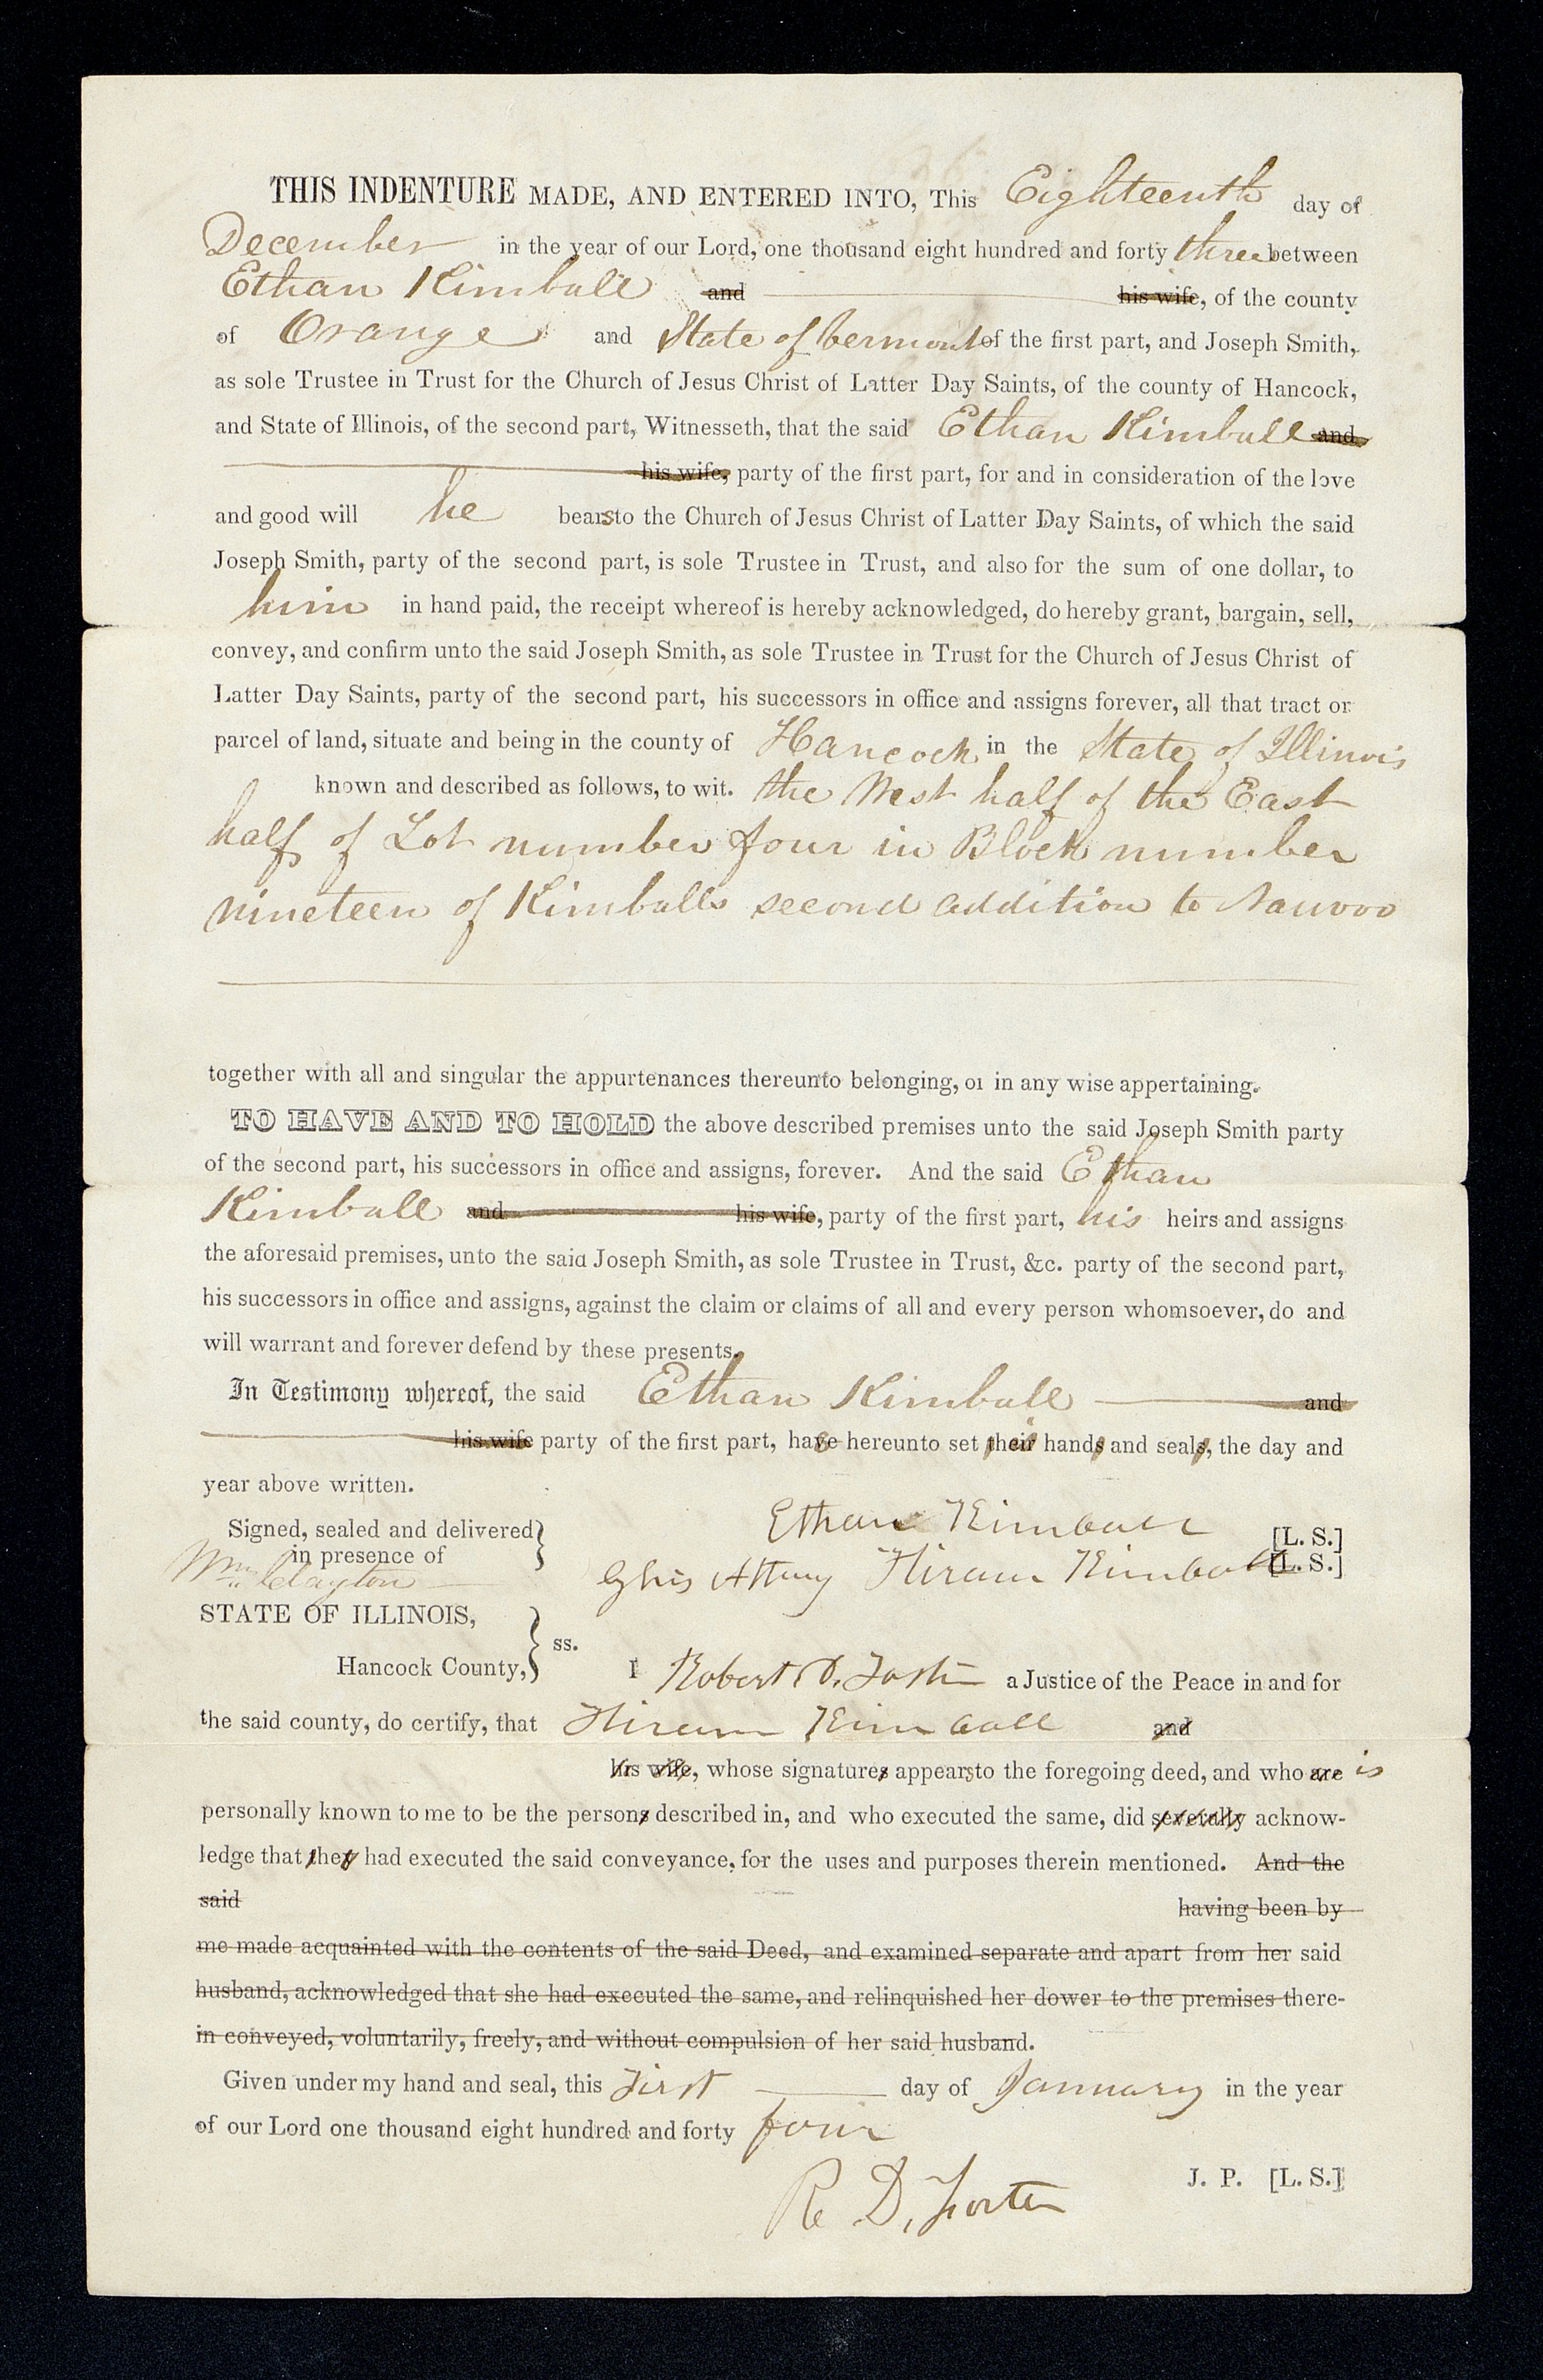 THIS INDENTURE MADE, AND ENTERED INTO, This Eighteenth day of
December in the year of our Lord, one thousand eight hundred and forty three between
Ethan Kimball and his wife, of the county
of Orange and State of Vermont of the first part, and Joseph Smith,
as sole Trustee in Trust for the Church of Jesus Christ of Latter Day Saints, of the county of Hancock,
and State of Illinois, of the second part, Witnesseth, that the said Ethan Kimball and
his wife, party of the first part, for and in consideration of the love
and good will he bears to the Church of Jesus Christ of Latter Day Saints, of which the said
Joseph Smith, party of the second part, is sole Trustee in Trust, and also for the sum of one dollar, to
him in hand paid, the receipt whereof is hereby acknowledged, do hereby grant, bargain, sell,
convey, and confirm unto the said Joseph Smith, as sole Trustee in Trust for the Church of Jesus Christ of
Latter Day Saints, party of the second part, his successors in office and assigns forever, all that tract or
parcel of land, situate and being in the county of Hancock in the State of Illinois
known and described as follows, to wit. the West half of the East
half of Lot number four in Block number
nineteen of Kimballs second addition to Nauvoo
together with all and singular the appurtenances thereunto belonging, or in any wise appertaining.
TO HAVE AND TO HOLD the above described premises unto the said Joseph Smith party
of the second part, his successors in office and assigns, forever. And the said Ethan
Kimball and his wife, party of the first part, his heirs and assigns
the aforesaid premises, unto the said Joseph Smith, as sole Trustee in Trust, &c. party of the second part,
his successors in office and assigns, against the claim or claims of all and every person whomsoever, do and
will warrant and forever defend by these presents.
In Testimony whereof, the said Ethan Kimball and
his wife party of the first part, have hereunto set their hands and seals, the day and
year above written.
Signed, sealed and delivered Ethan Kimball [L. S.]
in presence of By his Attny Hiram Kimball [L. S.]
Wm Clayton
STATE OF ILLINOIS,
ss.
Hancock County, I Robert D. Foster a Justice of the Peace in and for
the said county, do certify, that Hiram Kimball and
his wife, whose signatures appears to the foregoing deed, and who are is
personally known to me to be the persons described in, and who executed the same, did severally acknow-
ledge that they had executed the said conveyance, for the uses and purposes therein mentioned. And the
said having been by
me made acquainted with the contents of the said Deed, and examined separate and apart from her said
husband, acknowledged that she had executed the same, and relinquished her dower to the premises there-
in conveyed, voluntarily, freely, and without compulsion of her said husband.
Given under my hand and seal, this First day of January in the year
of our Lord one thousand eight hundred and forty four
J. P. [L. S.]
R D. Foster